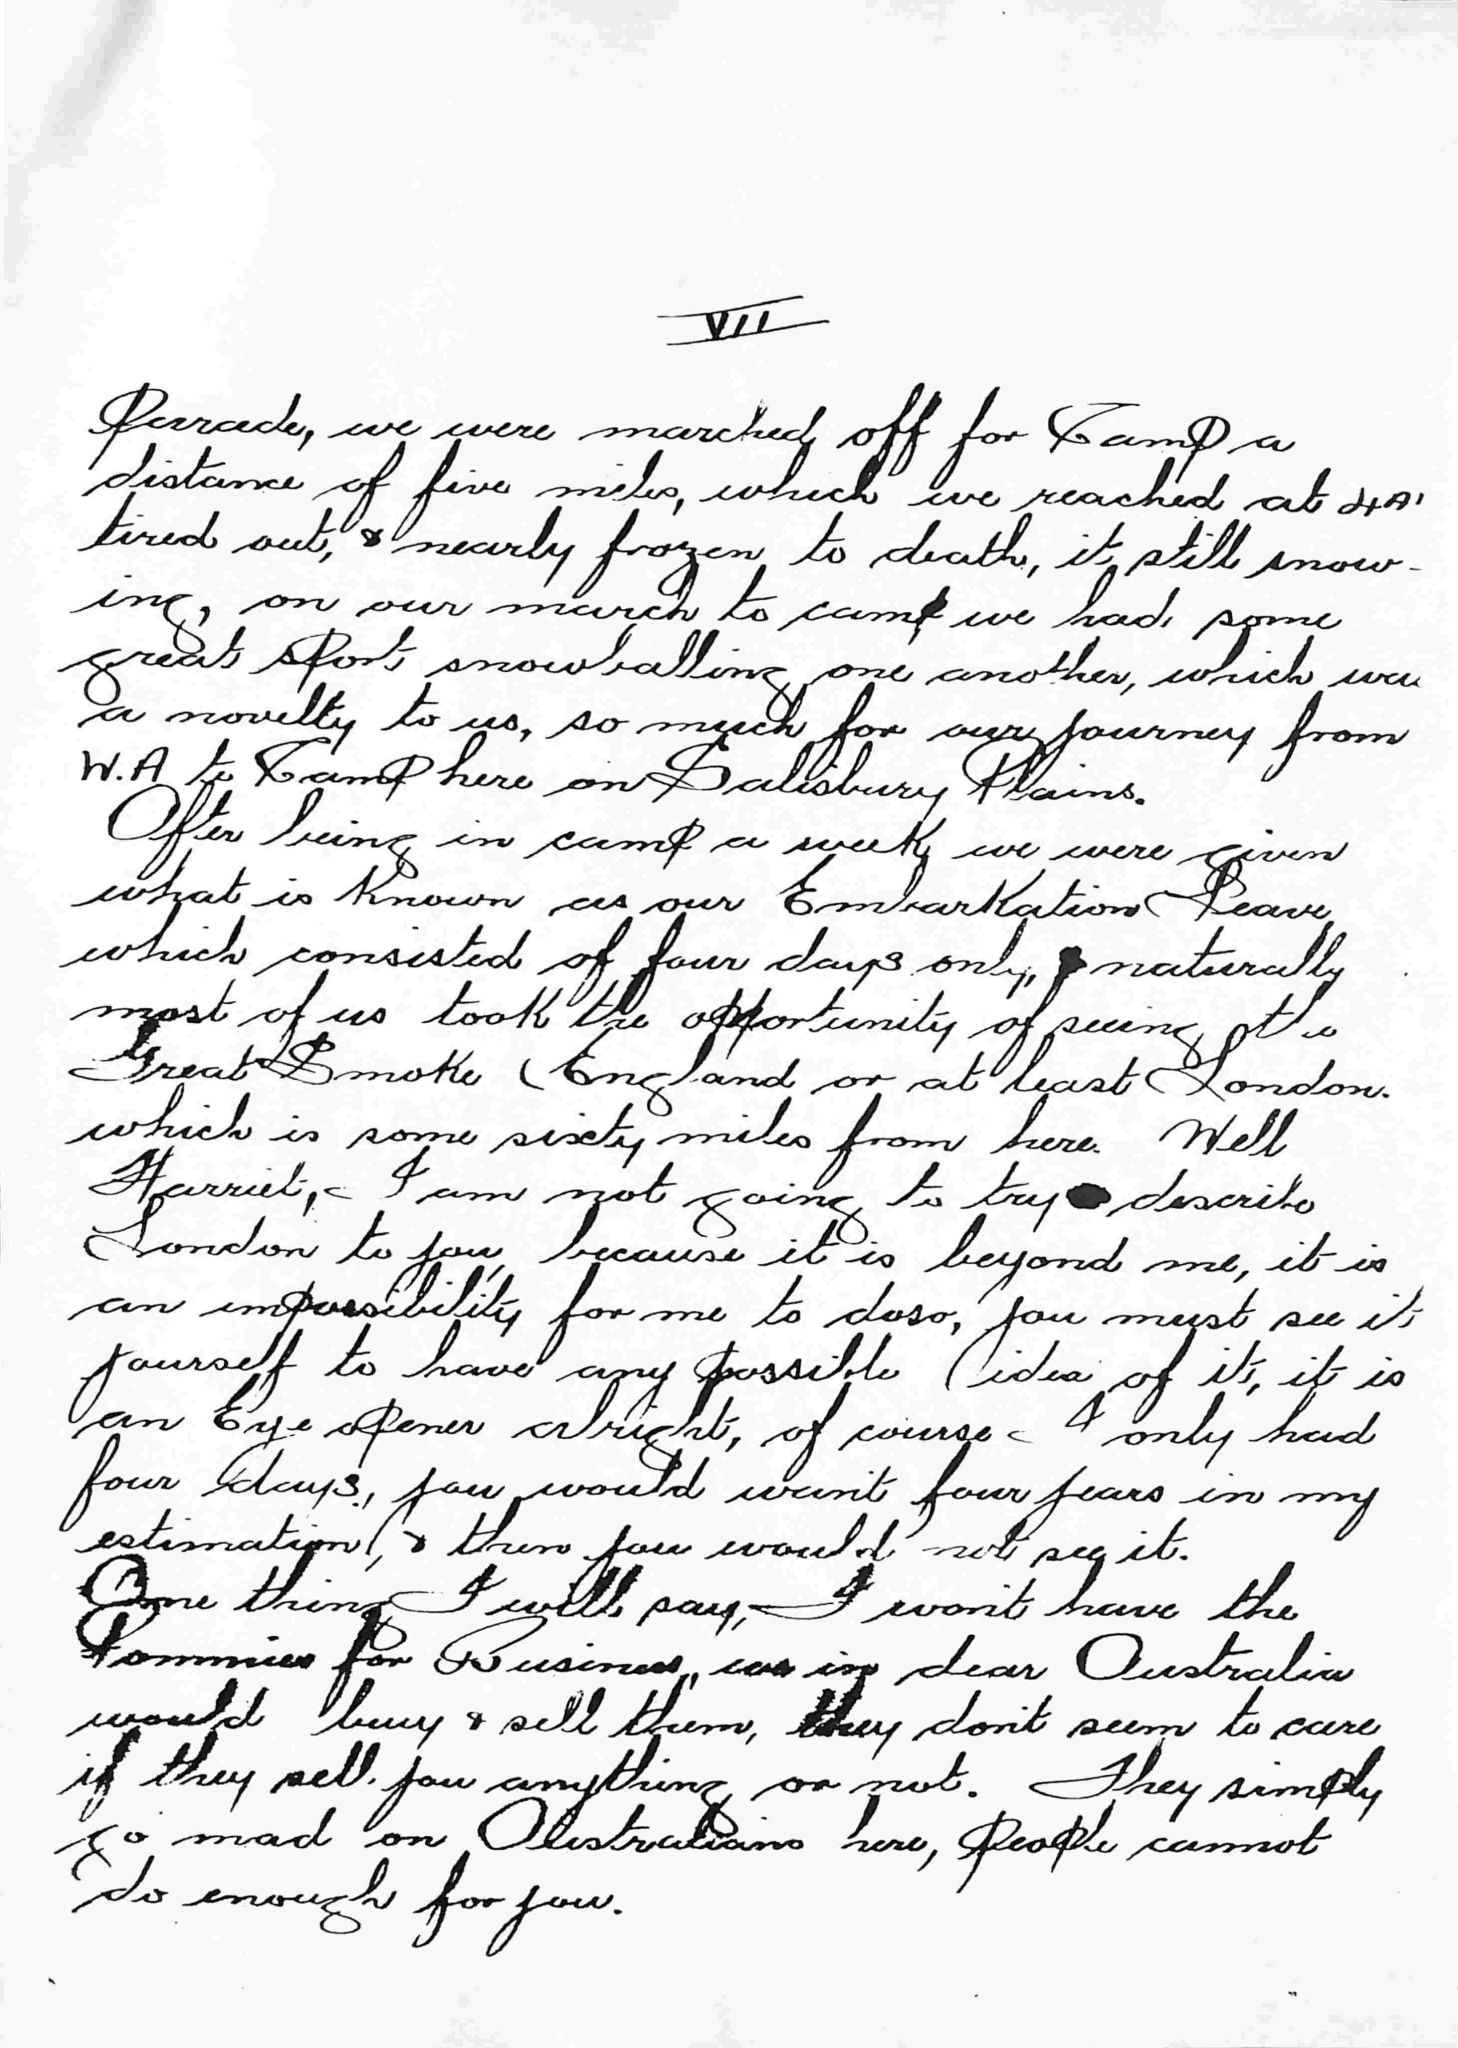 VII
Parade, we were marched off for Camp a
distance of five miles, which we reached at 4 A'
tired out, & nearly frozen to death, it still snow-
ing, on our march to camp we had some
great sport snowballing one another, which was
a novelty to us, so much for our journey from
W.A to Camp here on Salisbury Plains.
After being in camp a week we were given
what is known as our Embarkation Leave,
which consisted of four days only, naturally
most of us took the opportunity of seeing the
Great Smoke (England or at least London.
which is some sixty miles from here. Well
Harriet, I am not going to try describe
London to you, because it is beyond me, it is
an impossibility for me to doso, you must see it
yourself to have any possible idea of it, it is
an Eye opener alright, of course I only had
four days, you would want four years in my
estimation, & then you would not see it.
One thing I will say, I wont have the
Pommies for Business, we in dear Australia
would buy & sell them, they dont seem to care
if they sell you anything or not. They simply
go mad on Australians here, people cannot
do enough for you.